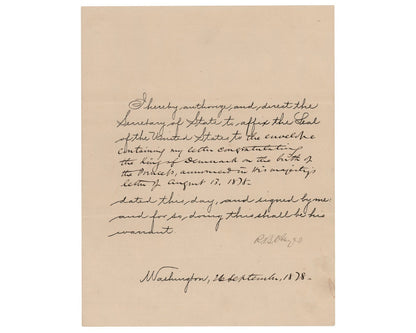 I hereby authorize and direct the
Secretary of State to affix the Seal
of the United States to the envelope
containing my letter congratulating
the King of Denmark on the birth of
the Princess, announced in His Majesty's
letter of August 13, 1878.
dated this day, and signed by me
and for so doing this shall be his
warrant
R.B. Hayes
Washington, September, 1878.